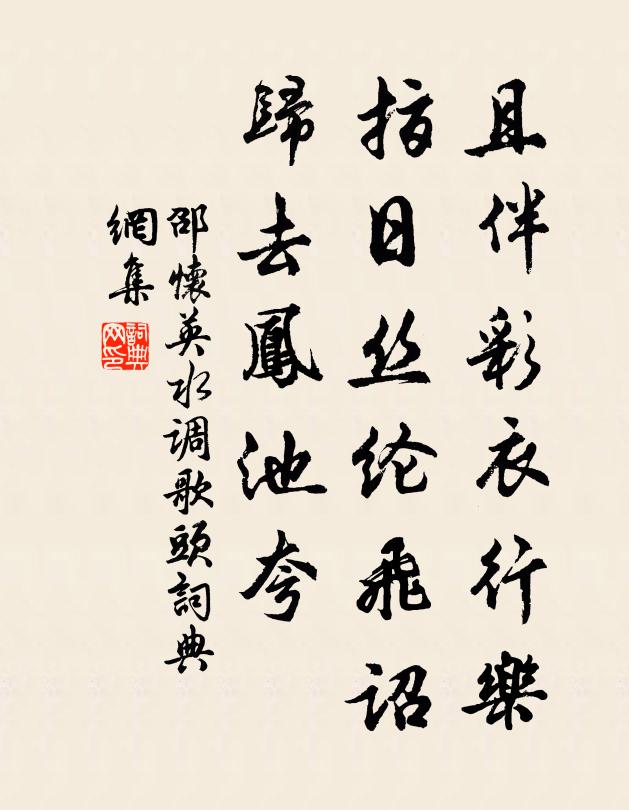 且伴彩衣行樂
指日丝纶飛诏
歸去鳳池夸
邵懷英水调歌頭詞典
網集
詞典
网印